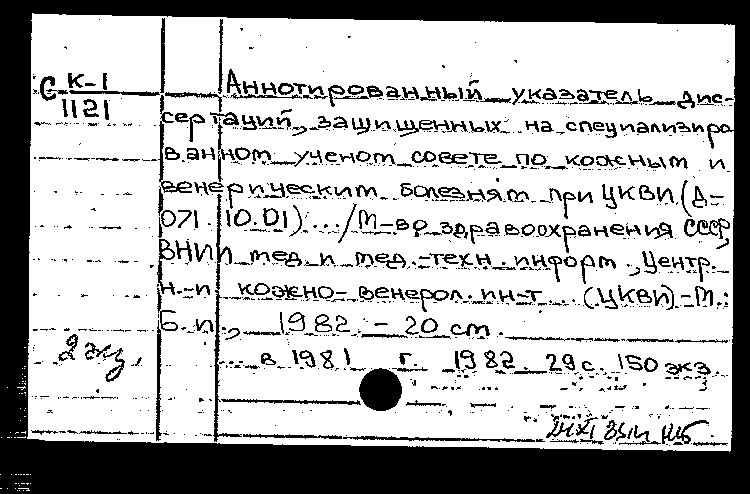 С К-1
1121
Аннотированный указатель дис-
сертаций, защищенных на специализиро
ванном ученом совете по кожным и
венерическим болезням при ЦКВИ (Д-
071.10.01)... / М-во здравоохранения СССР,
ВНИИ мед. и мед.-техн. информ., Центр.
н.-и кожно-венерол. ин-т (ЦКВИ) - М.:
Б. и., 1982. - 20 см.
2 экз.
... в 1981 г. 1982. 29 с. 150 экз.